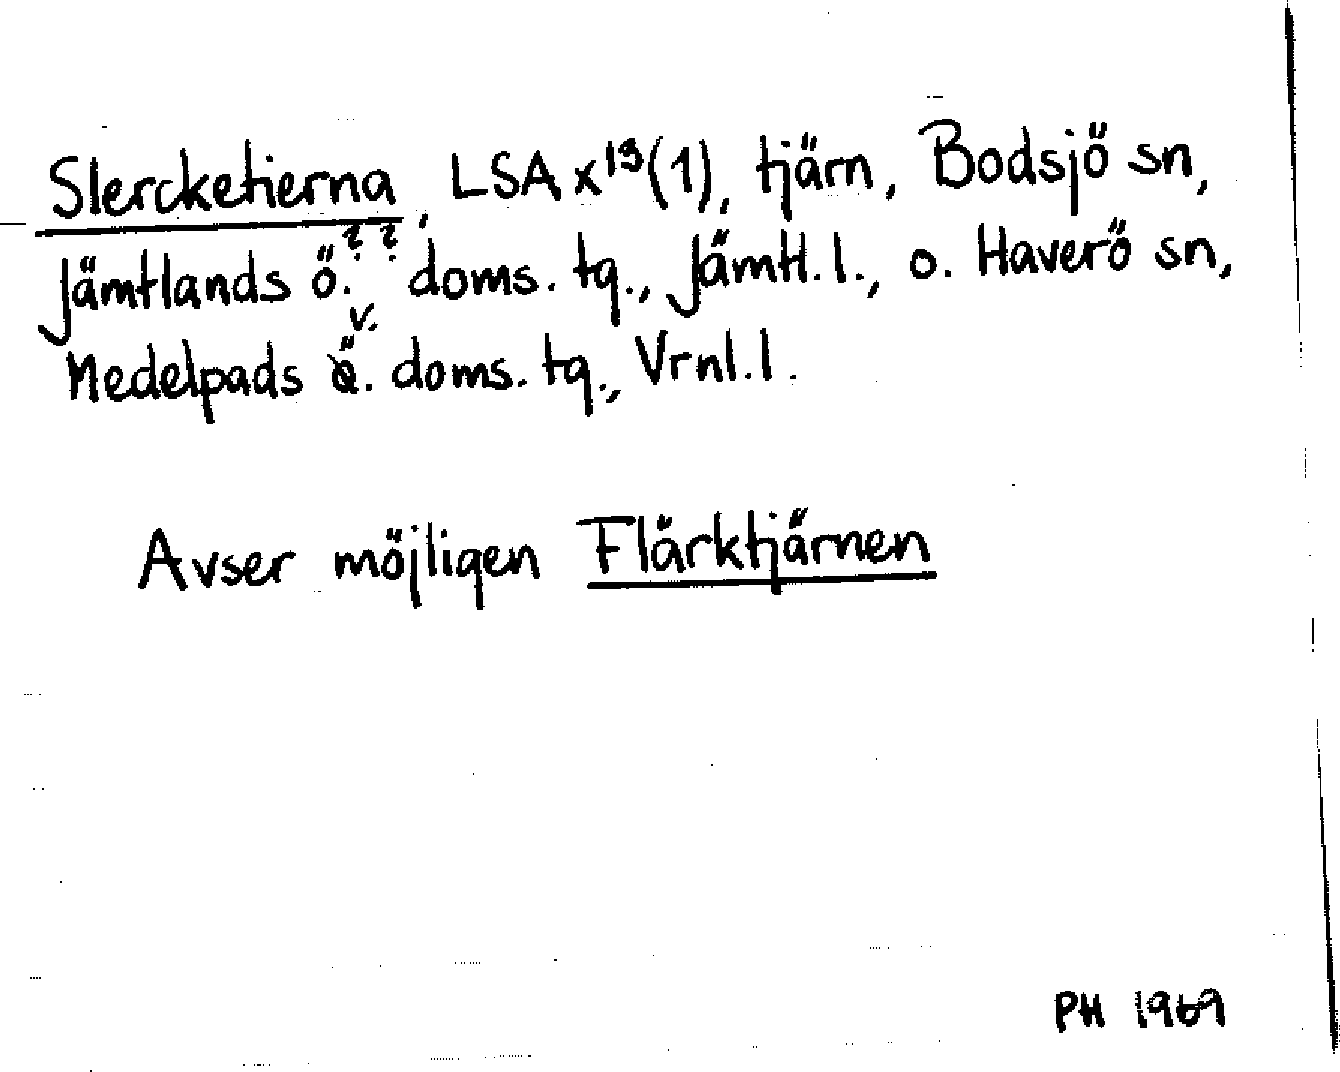 Slercketierna, LSA x¹³(1), tjärn, Bodsjö sn,
Jämtlands ö. doms. tg., Jämtl. l., o. Haverö sn,
? ?
v.
Medelpads ö. doms. tg., Vrnl. l.
Avser möjligen Flärktjärnen
PH 1969